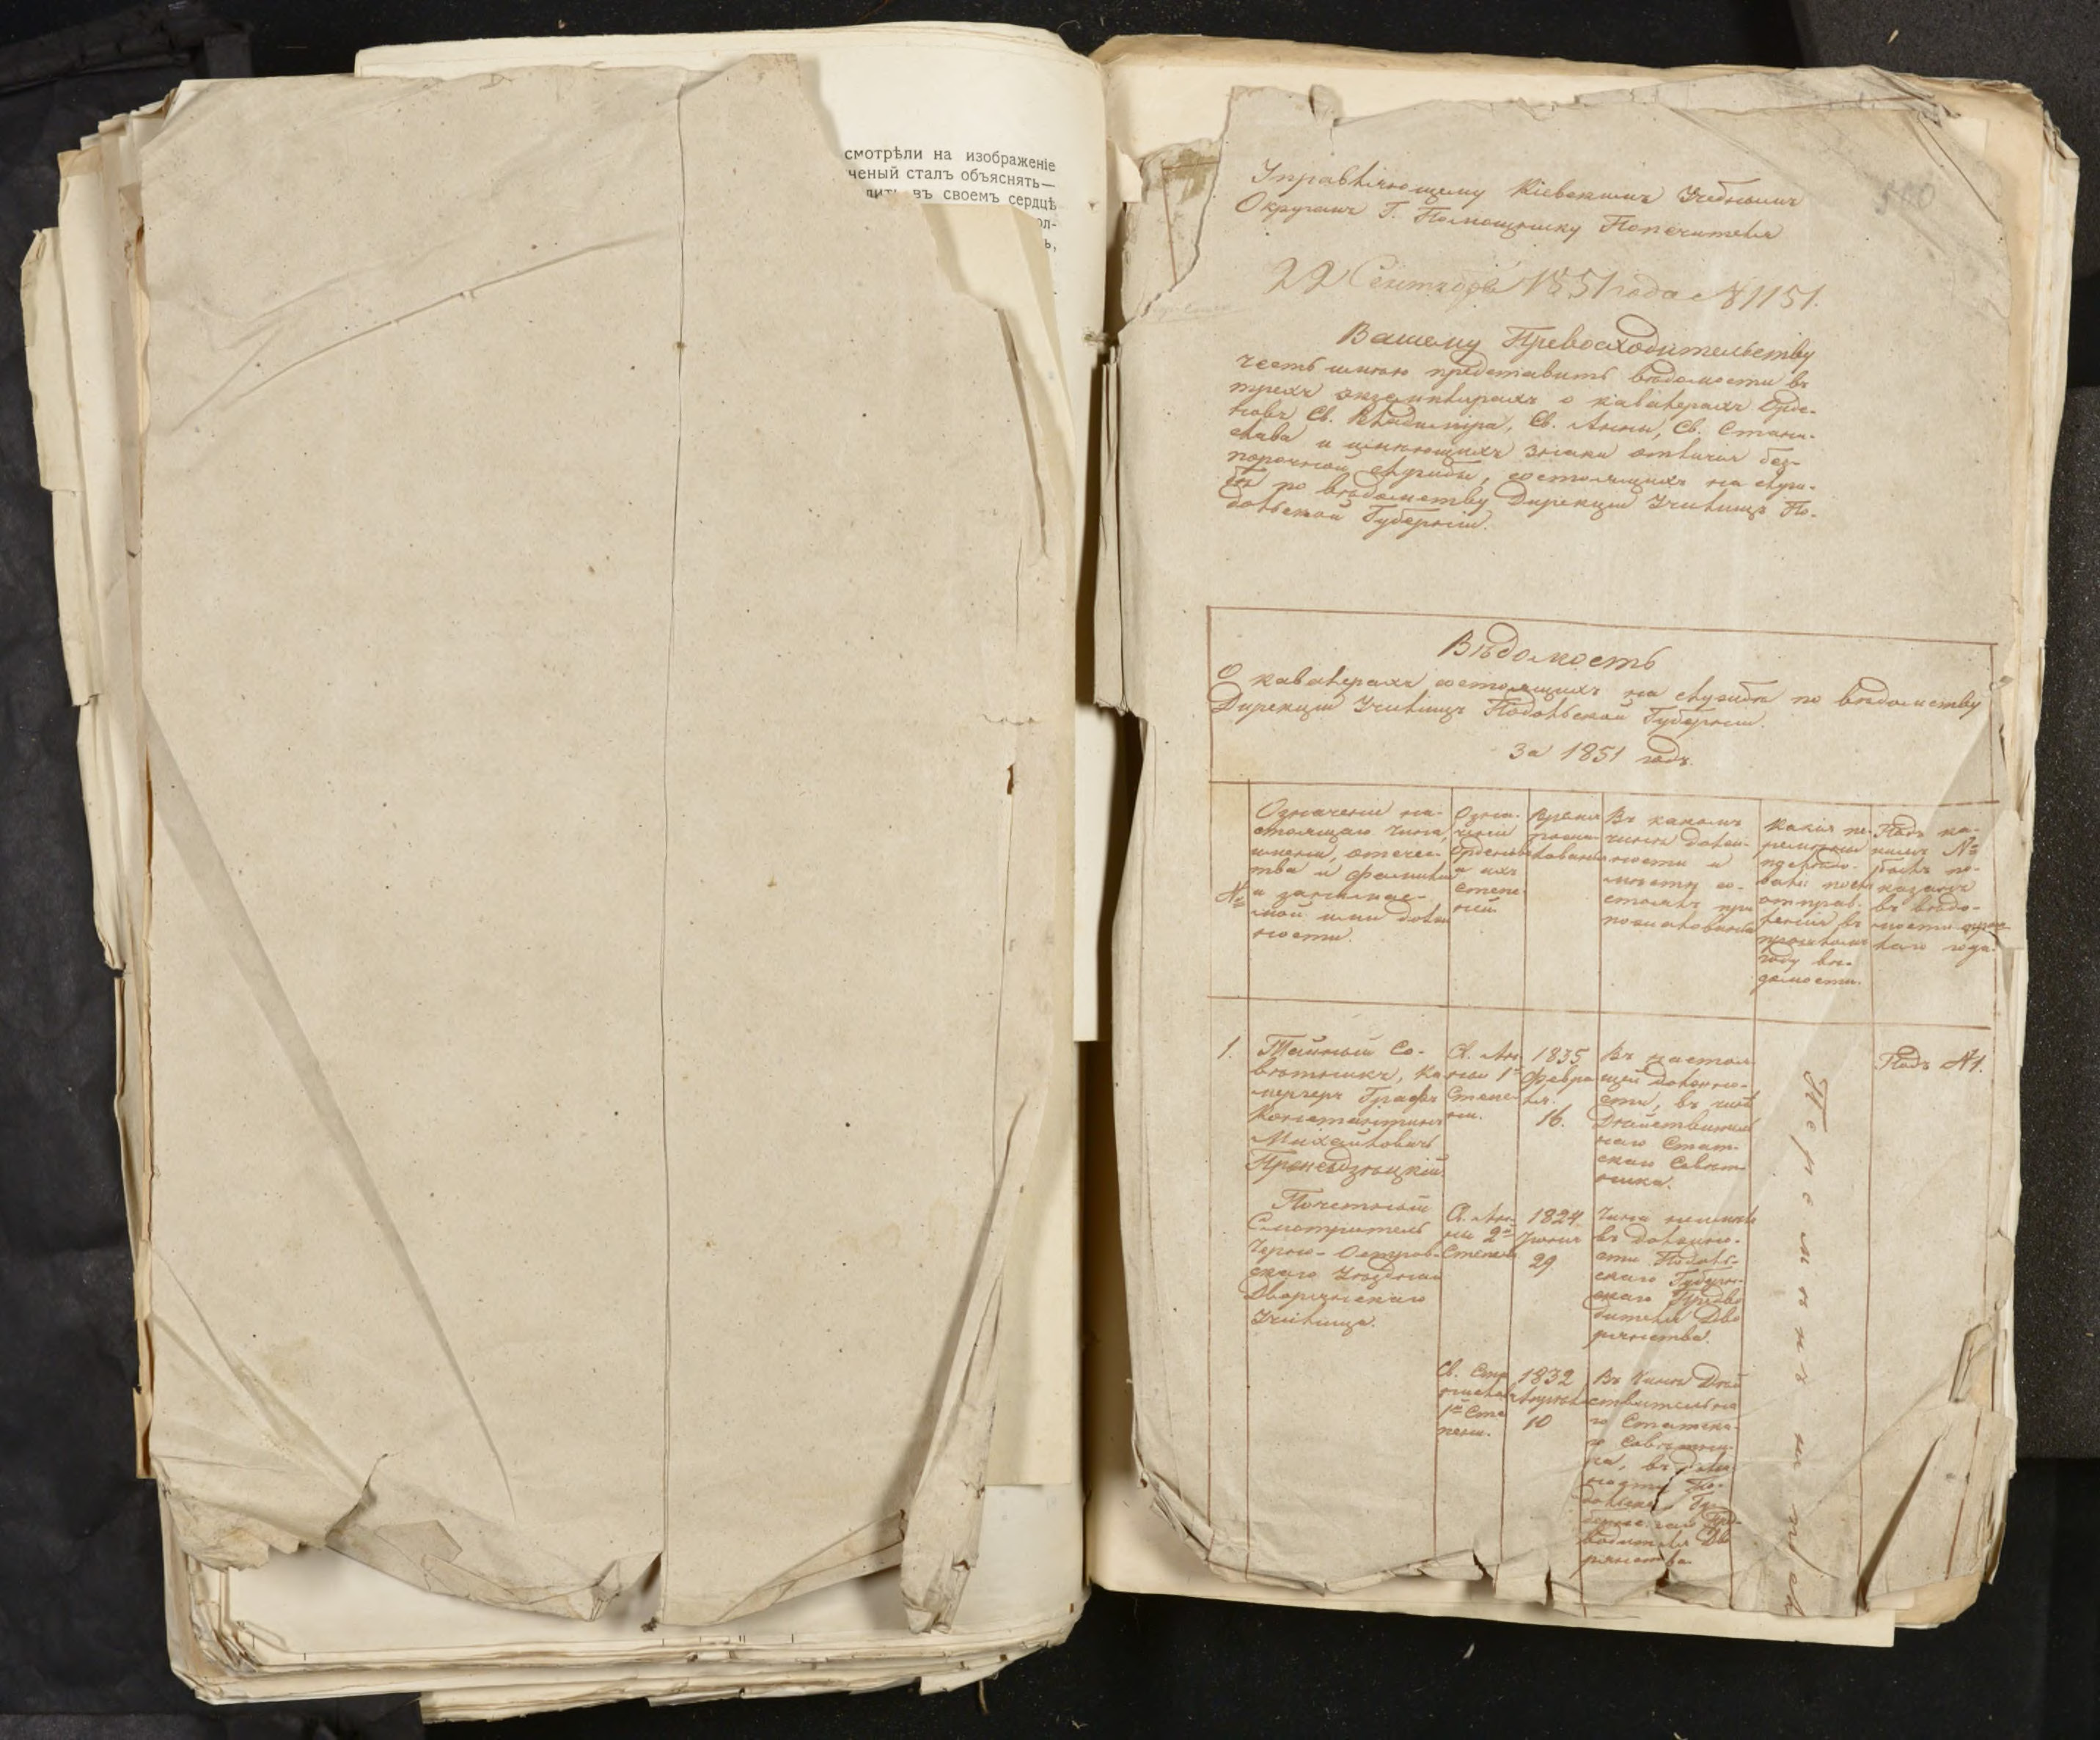 смотрѣли на изображеніе
ченый сталъ объяснять—
въ своемъ сердцѣ
ол-
ь,
500
Управляющему Кіевскимъ Учебнымъ
Округомъ Г. Помощнику Попечителя
22 Сентября 1851 года №1151.
Вашему Превосходительству
честь имѣю представить вѣдомости въ
трехъ экземплярахъ о кавалерахъ Орде-
новъ Св. Владиміра, Св. Анны, Св. Стани-
слава и имѣющихъ знаки отличія без-
порочной службы, состоящихъ на служ-
бѣ по вѣдомству Дирекціи Училищъ По-
дольской Губерніи.
Вѣдомость
О кавалерахъ состоящихъ на службѣ по вѣдомству
Дирекціи Училищъ Подольской Губерніи.
За 1851 годъ.
№
Означеніе на-
стоящаго чина,
имени, отчес-
тва и фамиліи
и занимае-
мой ими долж
ности.
Озна-
ченіе
орденовъ
и ихъ
степе-
ней.
Время
пожа-
лованія
Въ какомъ
чинѣ должн-
ности и
мѣстѣ со-
стоялъ при
пожалованіи
Какія пе-
ремѣны
послѣ
отправ-
ленія въ
прошломъ
году вѣ-
домости.
Подъ ка-
кимъ №
былъ по-
казанъ
въ вѣдо-
мости прош-
лаго года.
1.
Тайный Со-
вѣтникъ, Ка
мергеръ Графъ
Константинъ
Михайловичъ
Пржездзѣцкій.
Почетный
Смотритель
Черно-Остров-
скаго Уѣзднаго
Дворянскаго
Училища.
Св. Ан
ны 1й
Степе-
ни.
1835
Февра
ля.
16.
Въ настоя
щей должно-
сти, въ чинѣ
Дѣйствитель
наго Стат-
скаго Совѣт-
ника.
Св. Ан-
ны 2й
Степени
1824
Іюня
29
Чина не имѣлъ
въ должно-
сти Подоль-
скаго Губерн-
скаго Предво
дителя Дво
рянства.
Св. Ста
нислава
1й Сте
пени.
1832
Апрѣля
10
Въ Чинѣ Дѣй
ствительна
го Статска-
го Совѣтни-
ка, въ долж
ности По-
дольскаго Гу-
бернскаго Пред-
водителя Дво
рянства
Перемѣнъ не было
Подъ №1.